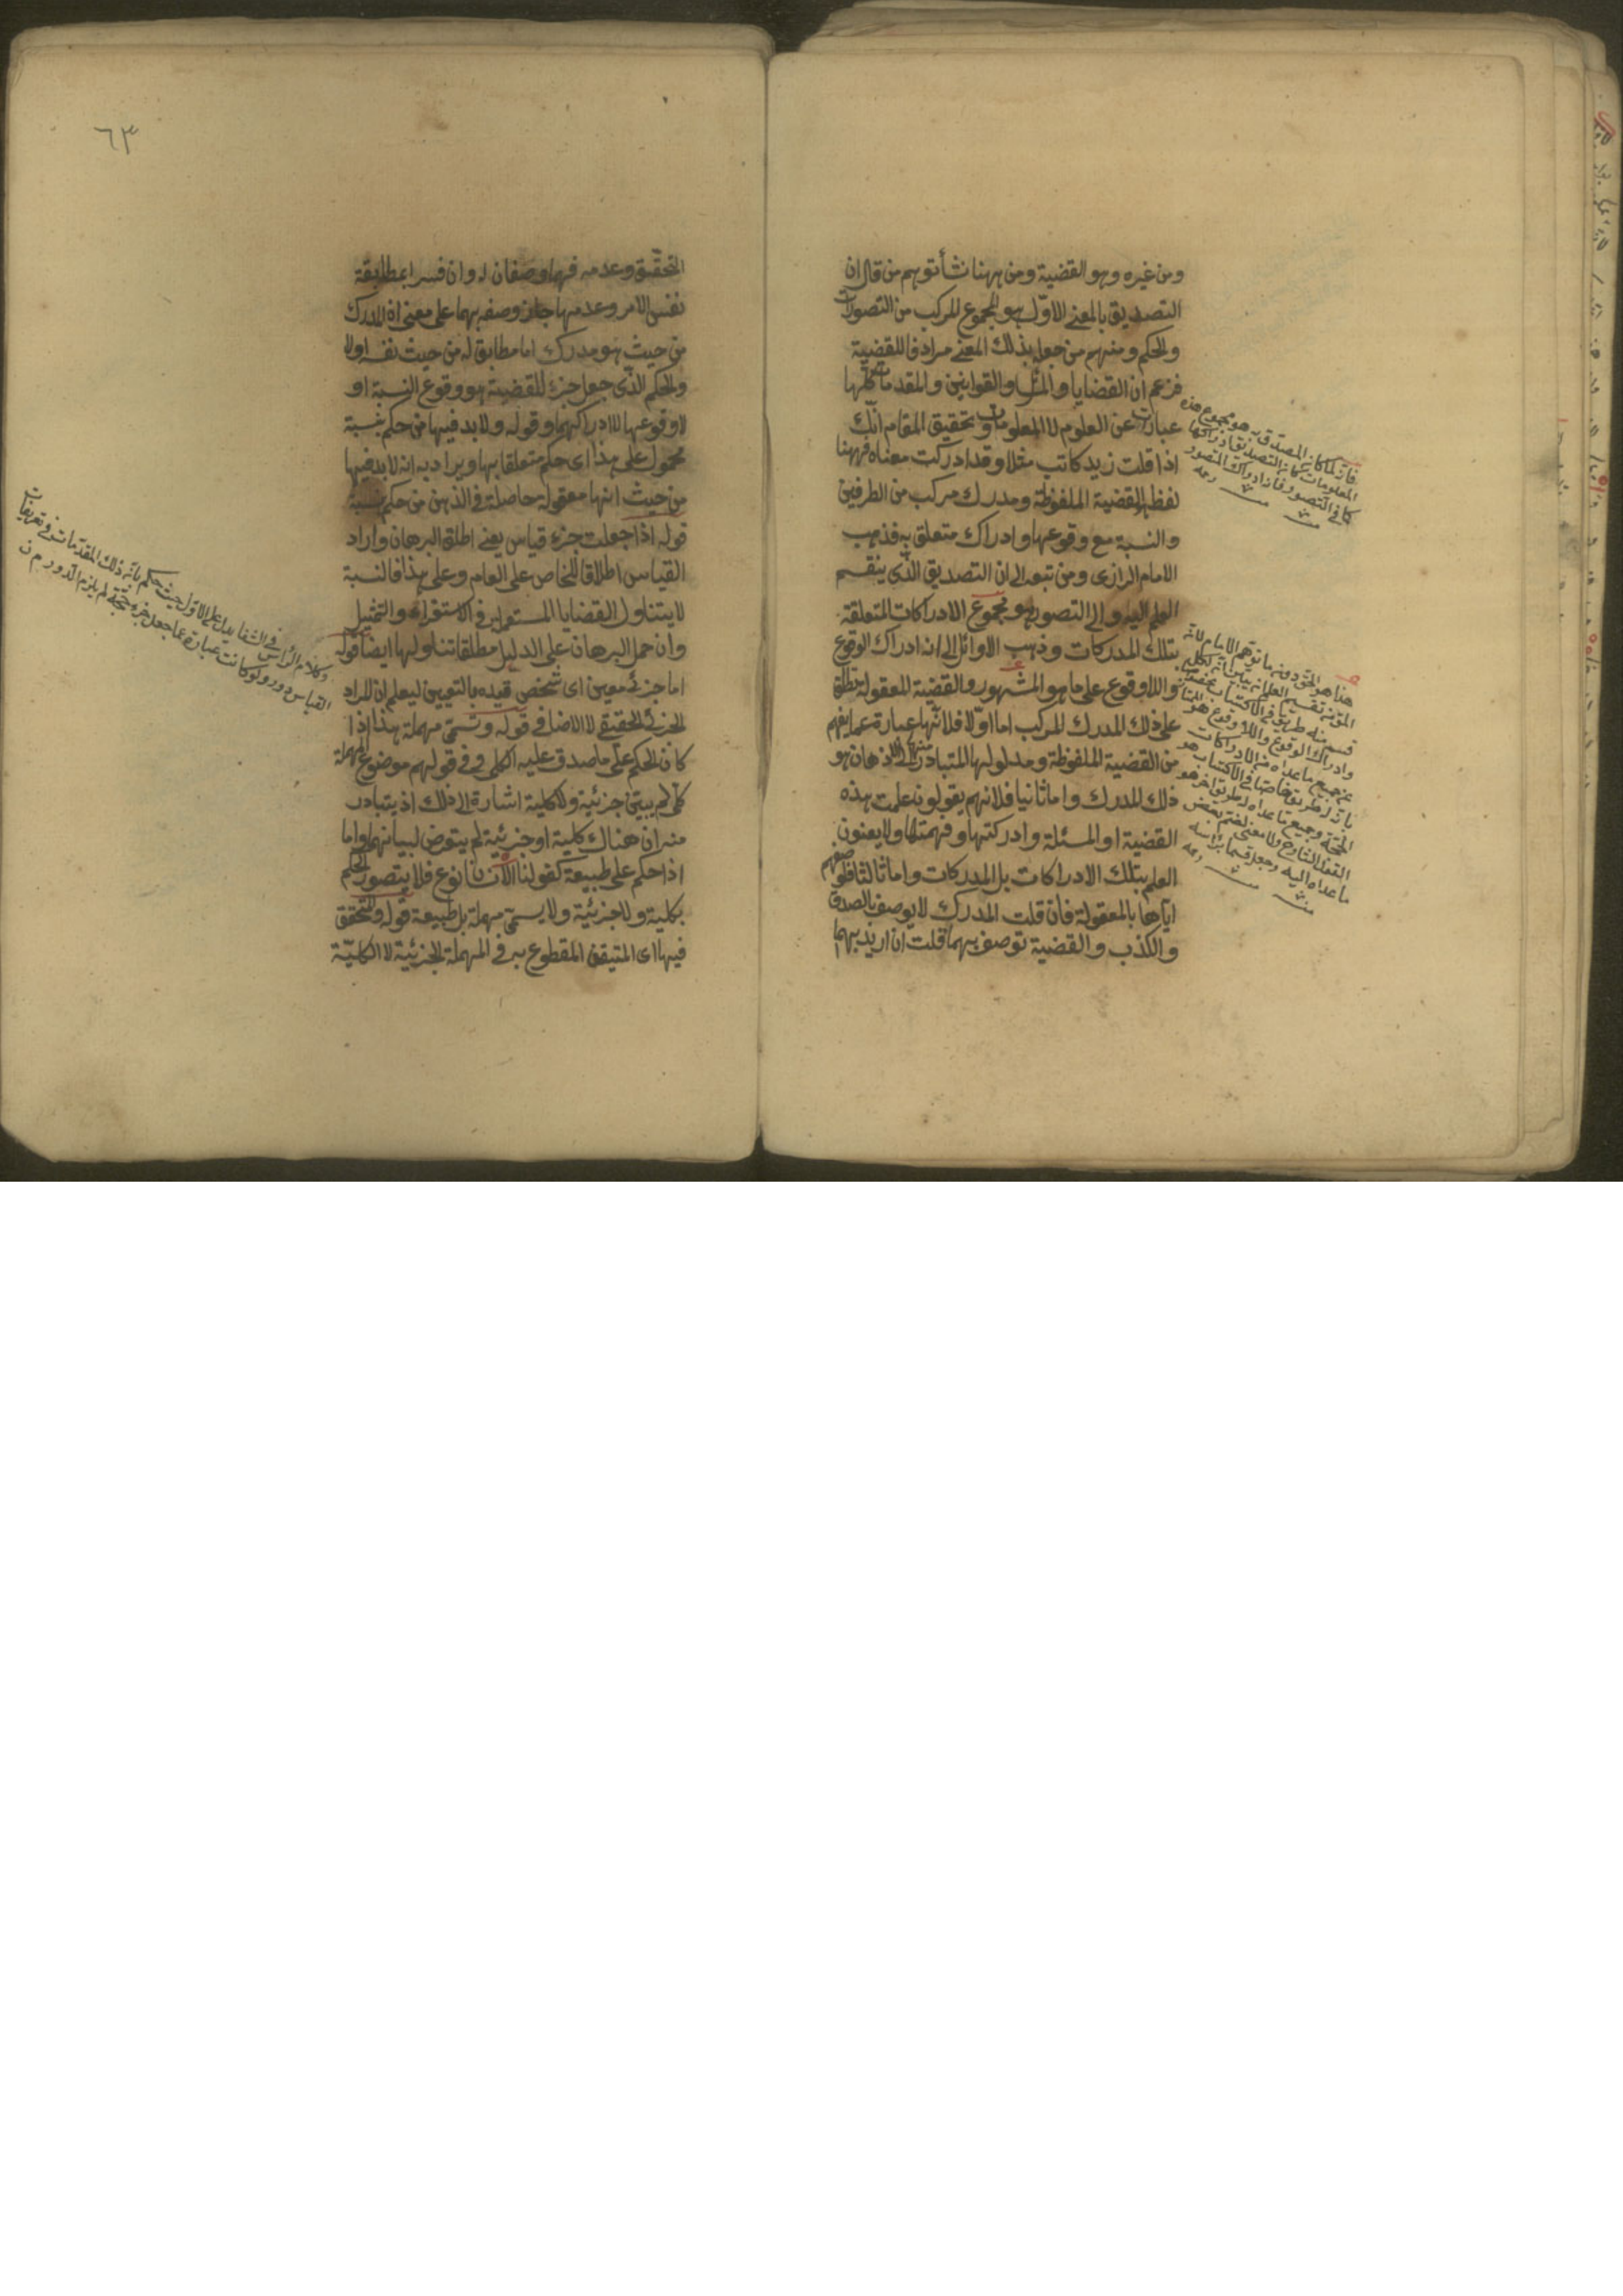 ومن غيره وهو القضية ومن ههنا نشأ توهم من قال ان
التصديق بالمعنى الاول هو المجموع المركب من التصورات
والحكم ومنهم من جعله بذلك المعنى مرادفا للقضية
فزعم ان القضايا والمسائل والقوانين والمقدمات كلها
عبارات عن العلوم لا المعلومات وتحقيق المقام انك
اذا قلت زيد كاتب مثلا وقد ادركت معناه فههنا
لفظ هو القضية الملفوظة ومدرك مركب من الطرفين
والنسبة مع وقوعها وادراك متعلق به فذهب
الامام الرازى ومن تبعه الى ان التصديق الذى ينقسم
العلم اليه والى التصور هو مجموع الادراكات المتعلقة
بتلك المدركات وذهب الاوائل الى انه ادراك الوقوع
واللاوقوع على ما هو المشهور والقضية المعقولة تطلق
على ذلك المدرك المركب اما اولا فلانها عبارة عما يفهم
من القضية الملفوظة ومدلولها المتبادر منها الى الاذهان هو
ذلك المدرك واما ثانيا فلانهم يقولون علمت هذه
القضية او المسئلة وادركتها وفهمتها ولا يعنون
العلم بتلك الادراكات بل المدركات واما ثالثا فلوصفهم
اياها بالمعقولة فان قلت المدرك لا يوصف بالصدق
والكذب والقضية توصف بهما قلت ان اريد بهما
فانه لما كان المصدق به هو مجموع هذه
المعلومات كان التصديق ادراكها
كما فى التصور فانه ادراك المتصور
منه رحمه
هذا هو الحق دون ما توهمه الامام لانه
المق من تقسيم العلم انه يتبين انه لكل
قسم منه طريق فى الاكتساب يخصه
وادراك الوقوع واللاوقوع هو الممتاز
عن جميع ما عداه من الادراكات
بان له طريق خاصا فى الاكتساب هو
الحجة وجميع ما عداه له طريق اخر هو
القول الشارح ولا معنى لضم بعض
ما عداه اليه وجعله قسما برأسه
منه رحمه
٦٣
التحقق وعدمه فهما وصفان له وان فسرا بمطابقة
نفس الامر وعدمها جاز وصفه بهما على معنى ان المدرك
من حيث هو مدرك اما مطابق له من حيث نفسه اولا
والحكم الذى جعل جزء للقضية هو وقوع النسبة او
لا وقوعها لا ادراكهما وقوله ولا بد فيها من حكم بنسبة
محمول على هذا اى حكم متعلقا بها ويراد به انه لا بد فيها
من حيث انها معقولة حاصلة فى الذهن من حكم بنسبة
قوله اذا جعلت جزء قياس يعنى اطلق البرهان واراد
القياس اطلاقا للخاص على العام وعلى هذا فالنسبة
لا يتناول القضايا المستعملة فى الاستقراء والتمثيل
وان حمل البرهان على الدليل مطلقا تناولها ايضا قوله
اما جزئى معين اى شخص قيده بالتعيين ليعلم ان المراد
الجزئى الحقيقى لا الاضافى قوله وتسمى مهملة هذا اذا
كان الحكم على ما صدق عليه الكلى وفى قولهم موضوع المهملة
كلى لم يبين جزئية ولا كلية اشارة الى ذلك اذ يتبادر
منه ان هناك كلية او جزئية لم يتعرض لبيانهما واما
اذا حكم على طبيعة كقولنا الانسان نوع فلا يتصور الحكم
بكلية ولا جزئية ولا يسمى مهملة بل طبيعة قوله والمتحقق
فيها اى المتيقن المقطوع به فى المهملة الجزئية لا الكلية
وكلام الرأس فى الشفا يدل على الاول حيث حكم بانه ذلك المقدمات فى تعريفات
القياس دور ولو كانت عبارة عما جعل جزء حجة لم يلزم الدور م ن